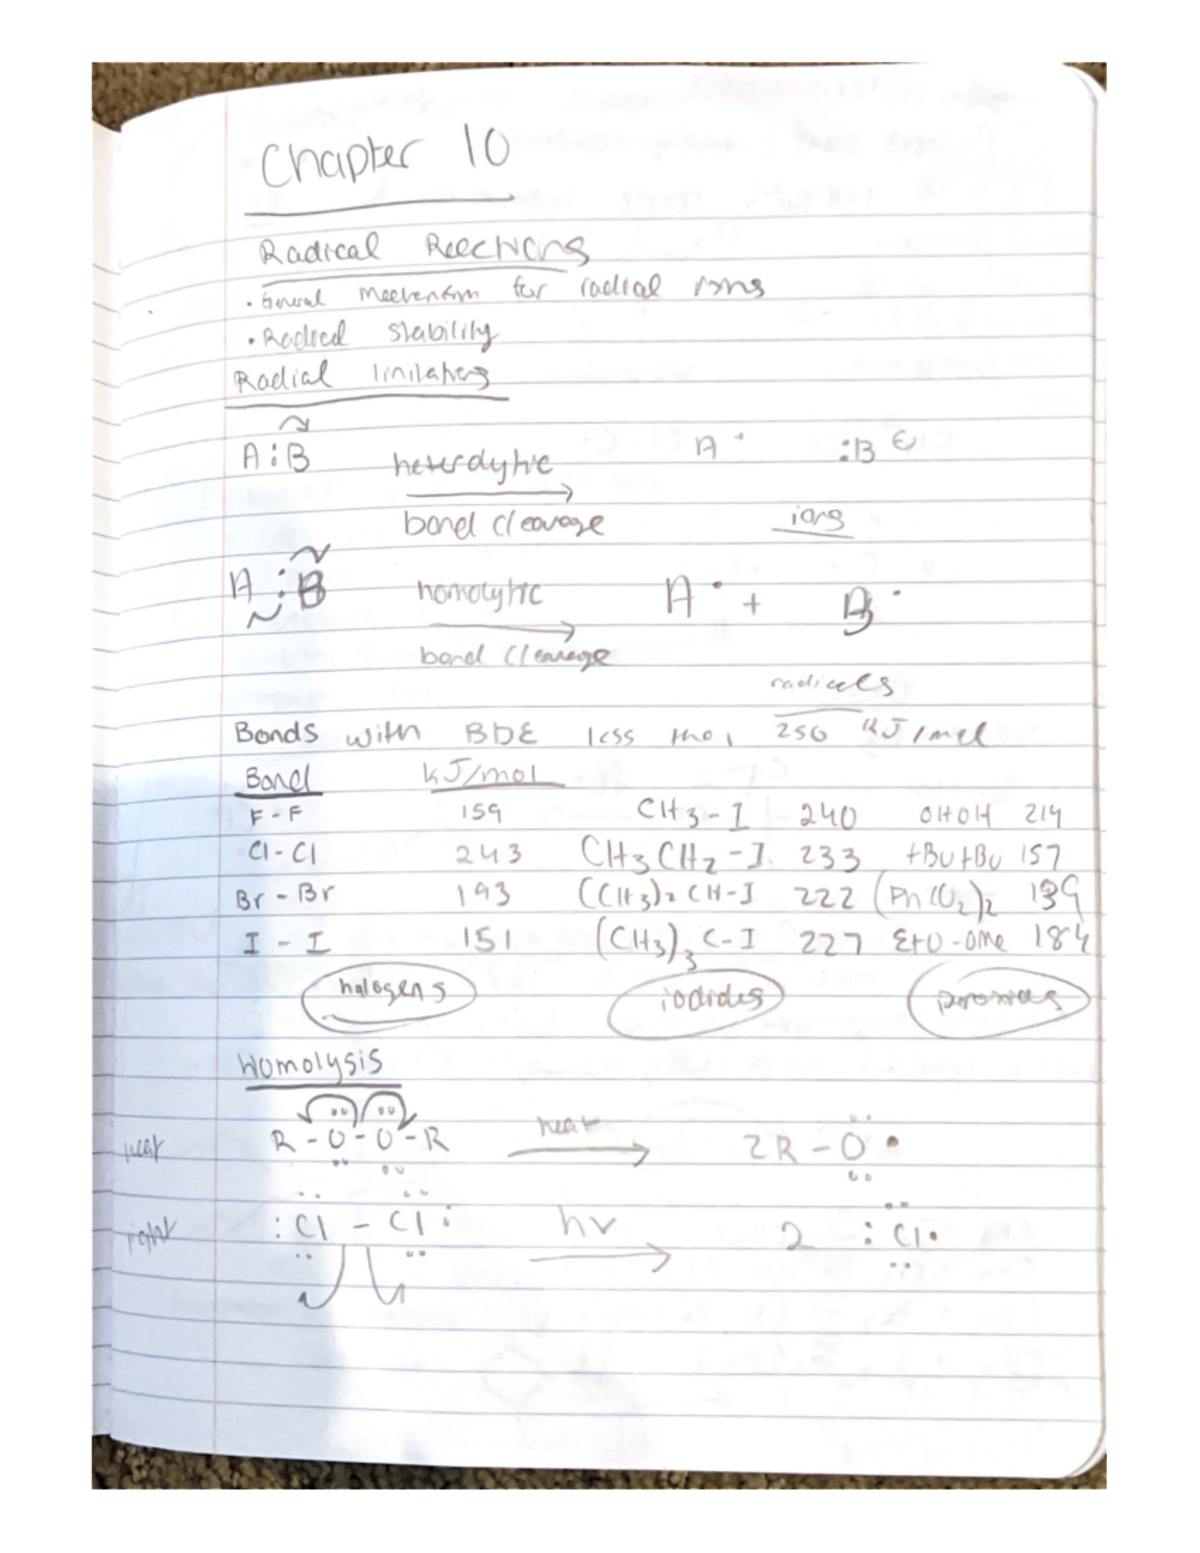 Chapter 10
Radical Reactions
• General Mechanism for radial rxns
• Radical stability
Radial
A:B heterolytic A⁺ :B⊖
bond cleavage ions
A:B homolytic A• + B•
bond cleavage
radicals
Bonds with BDE less than 250 kJ/mol
Bond kJ/mol
F-F 159 CH3-I 240 OHOH 214
Cl-Cl 243 CH3CH2-I 233 tButBu 157
Br-Br 193 (CH3)2CH-I 222 (PhCO2)2 139
I-I 151 (CH3)3C-I 227 EtO-OMe 184
halogens iodides peroxides
Homolysis
heat R-O-O-R heat 2R-O•
light :Cl-Cl: hv 2 :Cl•